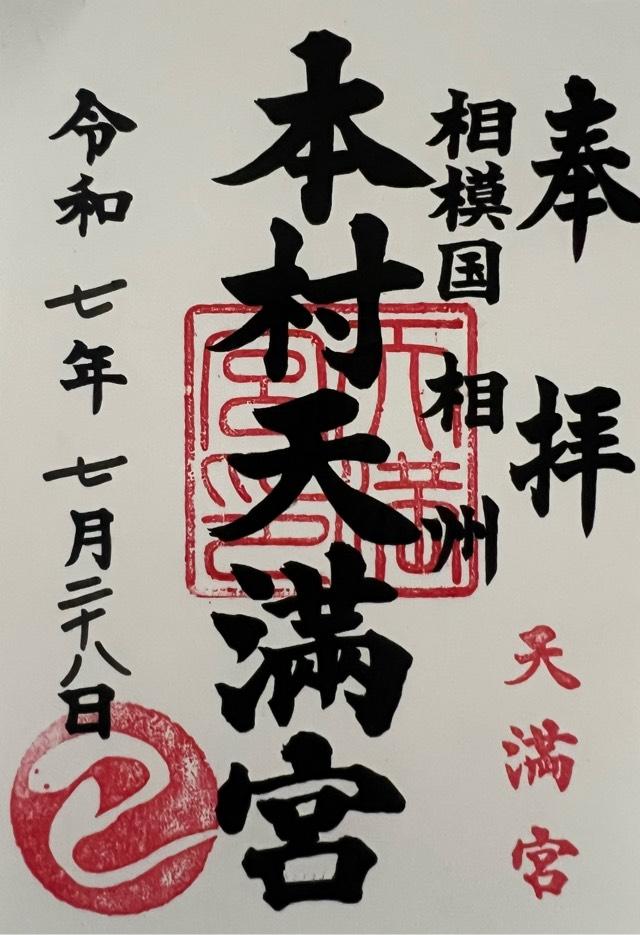 奉拝
天満宮
相模国 相州
本村天満宮
天満宮印
令和七年七月二十八日